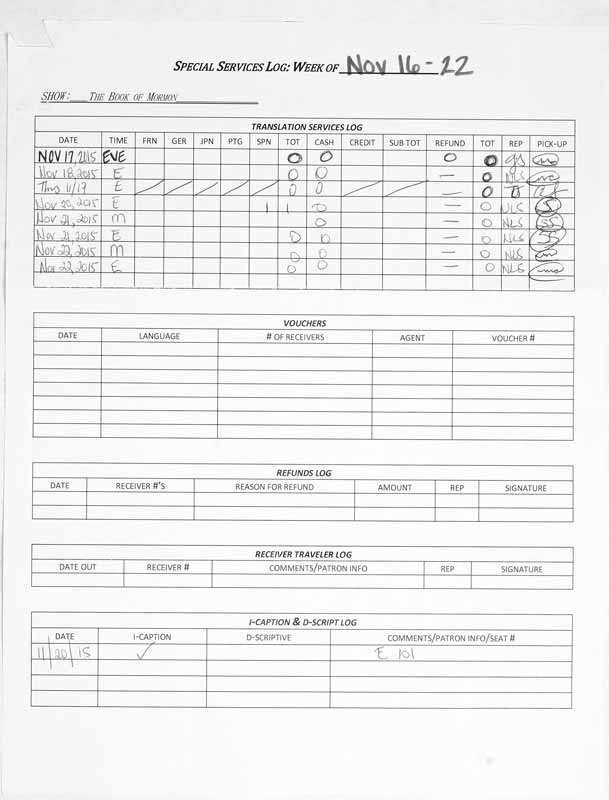 SPECIAL SERVICES LOG: WEEK OF Nov 16-22
SHOW: THE BOOK OF MORMON
TRANSLATION SERVICES LOG
DATE TIME FRN GER JPN PTG SPN TOT CASH CREDIT SUB TOT REFUND TOT REP PICK-UP
NOV 17, 2015 EVE 0 0 0 0
Nov 18, 2015 E 0 0 — 0 NLS
Thus 11/19 E / / / / / 0 0 / / — 0
Nov 20, 2015 E 1 1 0 — 0 NLS
Nov 21, 2015 M 0 — 0 NLS SS
Nov 21, 2015 E 0 0 — 0 NLS SS
Nov 22, 2015 M 0 0 — 0 NLS
Nov 22, 2015 E 0 0 — 0 NLS
VOUCHERS
DATE LANGUAGE # OF RECEIVERS AGENT VOUCHER #
REFUNDS LOG
DATE RECEIVER #'S REASON FOR REFUND AMOUNT REP SIGNATURE
RECEIVER TRAVELER LOG
DATE OUT RECEIVER # COMMENTS/PATRON INFO REP SIGNATURE
I-CAPTION & D-SCRIPT LOG
DATE I-CAPTION D-SCRIPTIVE COMMENTS/PATRON INFO/SEAT #
11/20/15 ✓ E 101